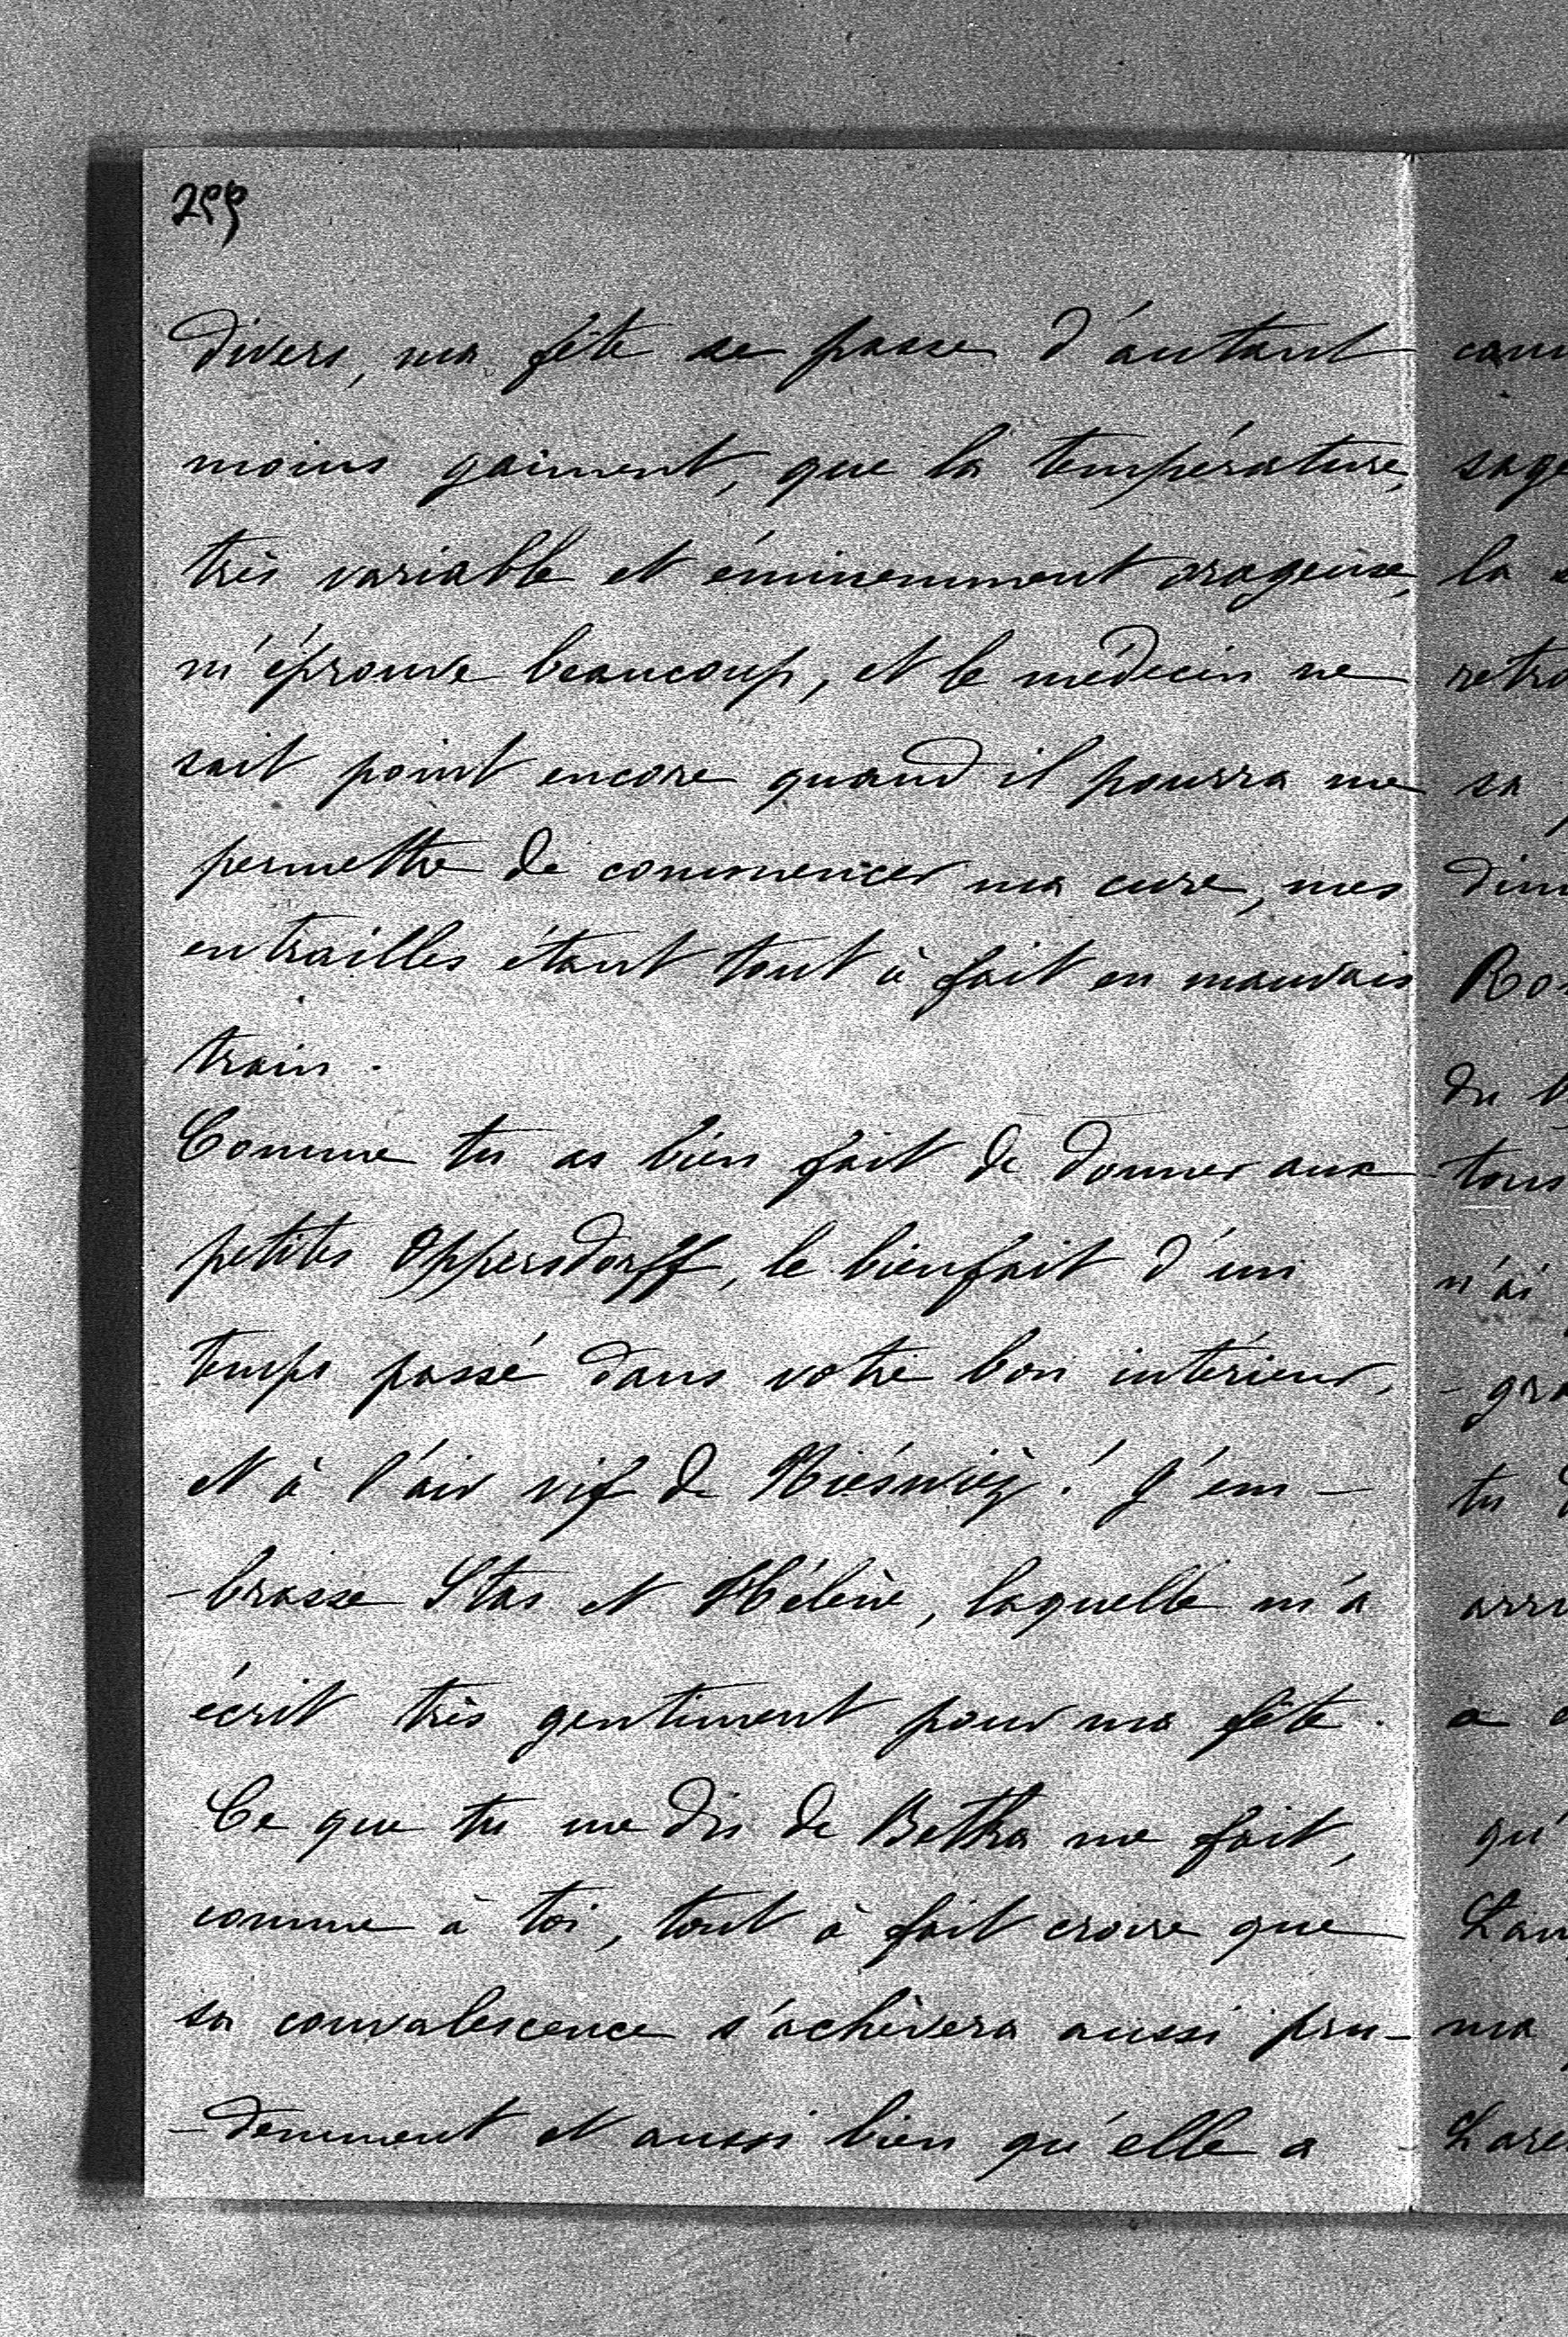 divers, ma fête se passe d'autant
moins gaiment, que la température,
très variable et éminemment orageuse,
m'éprouve beaucoup, et le médecin ne
sait point encore quand il pourra me
permettre de commencer ma cure, mes
entrailles étant tout à fait en mauvais
train.
Comme tu as bien fait de donner aux
petites Oppersdorff, le bienfait d'un
temps passé dans votre bon intérieur,
et à l'air vif de Nieświéż! J'em-
-brasse Stas et Hélène, laquelle m'a
écrit très gentiment pour ma fête.
Ce que tu me dis de Betka me fait,
comme à toi, tout à fait croire que
sa convalescence s'achèvera aussi pru-
-demment et aussi bien qu'elle a